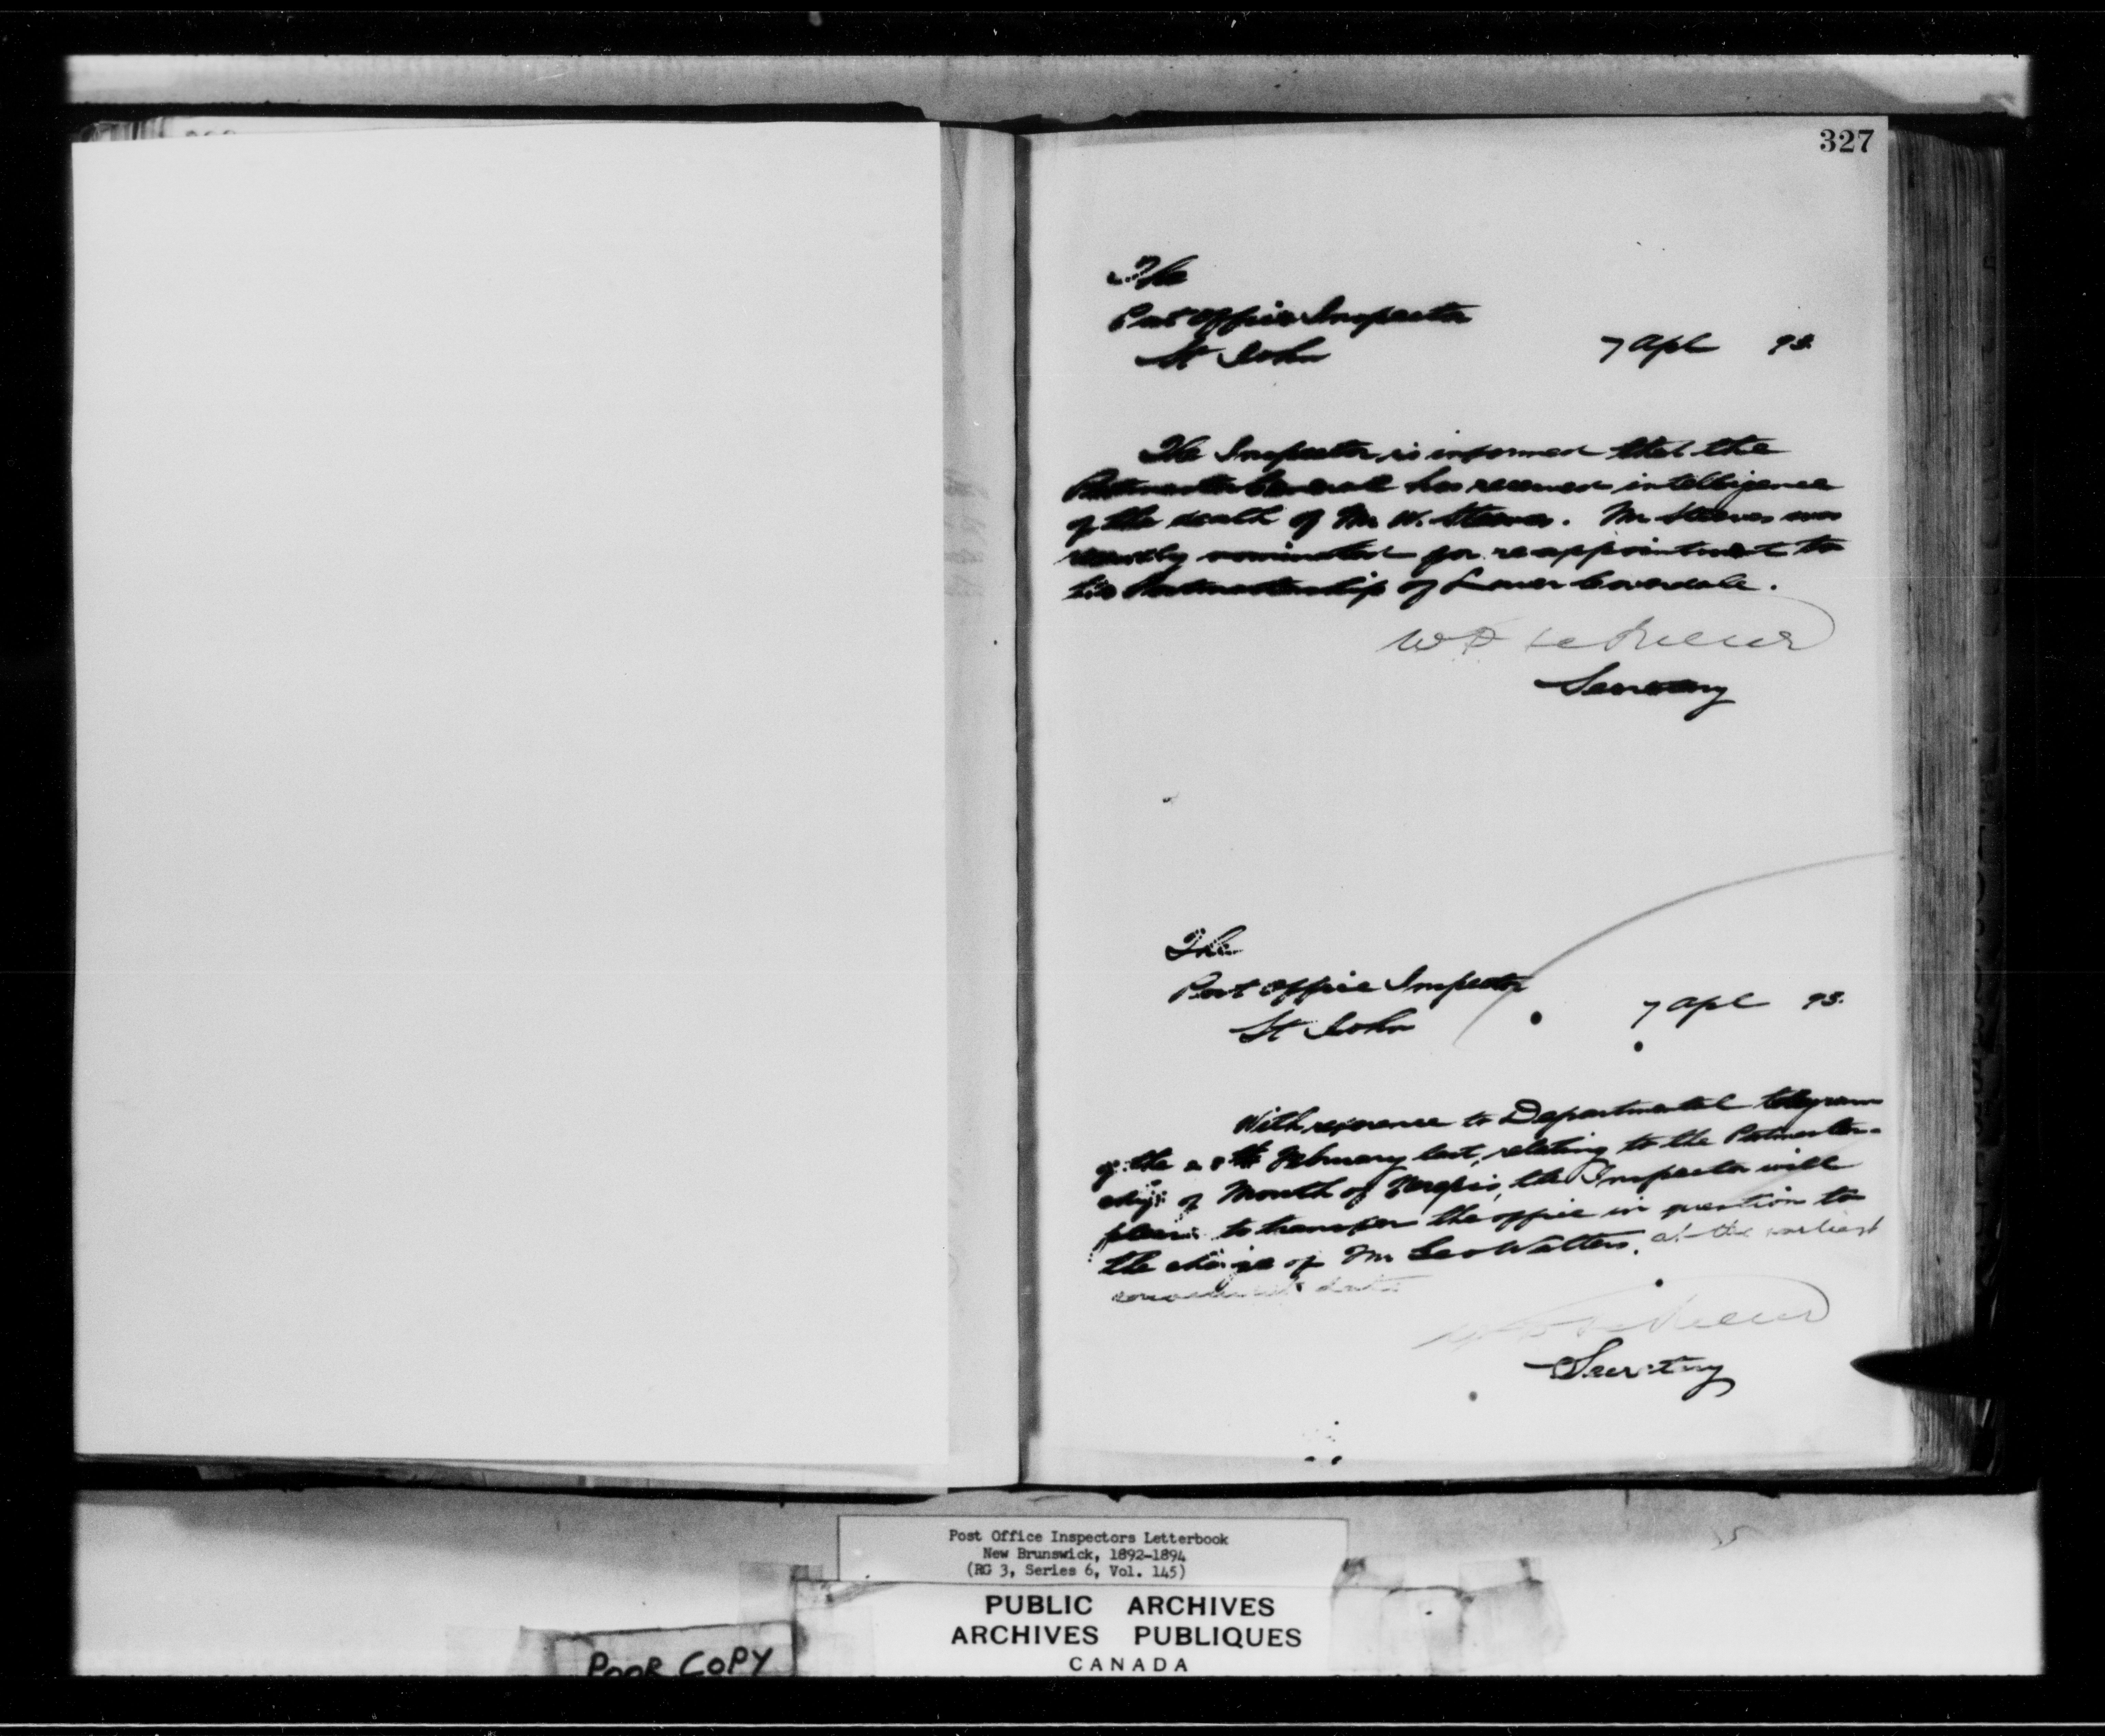 327
The
Post Office Inspector
St John
7 Apl 93.
The Inspector is informed that the
Postmaster General has received intelligence
of the death of Mr W. Steeves. Mr Steeves was
recently nominated for reappointment to
his Postmastership of Lower Coverdale.
W D LeSueur
Secretary
The
Post Office Inspector
St John
7 Apl 93.
With reference to Departmental telegram
of the 28th February last, relating to the Postmaster-
ship of Mouth of Nerepis, the Inspector will
please to transfer the office in question to
the charge of Mr Geo Watters. at the earliest
convenient date
W D LeSueur
Secretary
Post Office Inspectors Letterbook
New Brunswick, 1892-1894
(RG 3, Series 6, Vol. 145)
PUBLIC ARCHIVES
ARCHIVES PUBLIQUES
CANADA
POOR COPY